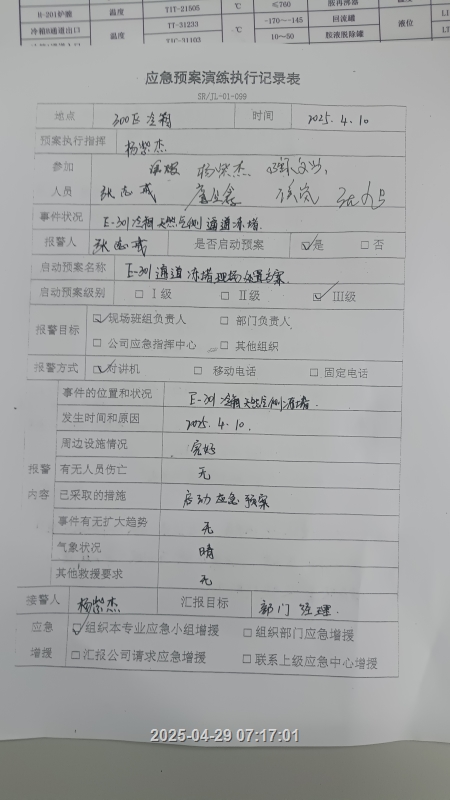 H-201炉膛 温度 TIT-21505 ℃ ≤760
冷箱B通道出口 温度 TT-31233 ℃ -170~-145 回流罐 液位
TIC-31103 10~50 胺液脱除罐
应急预案演练执行记录表
SR/JL-01-099
地点 300区冷箱 时间 2025.4.10
预案执行指挥 杨荣杰
参加 杨荣杰
人员 张志成
事件状况 E-301冷箱天然气侧通道冻堵
报警人 张志成 是否启动预案 ☑是 □否
启动预案名称 E-301通道冻堵现场处置方案
启动预案级别 □Ⅰ级 □Ⅱ级 ☑Ⅲ级
报警目标 ☑现场班组负责人 □部门负责人
□公司应急指挥中心 □其他组织
报警方式 ☑对讲机 □移动电话 □固定电话
事件的位置和状况 E-301冷箱天然气侧冻堵.
发生时间和原因 2025.4.10.
周边设施情况 完好
报警 有无人员伤亡 无
内容 已采取的措施 启动应急预案
事件有无扩大趋势 无
气象状况 晴
其他救援要求 无
接警人 杨荣杰 汇报目标 部门经理.
应急 ☑组织本专业应急小组增援 □组织部门应急增援
增援 □汇报公司请求应急增援 □联系上级应急中心增援
2025-04-29 07:17:01